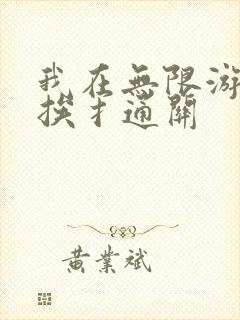 我在無限游
挨扌通關
黃業斌